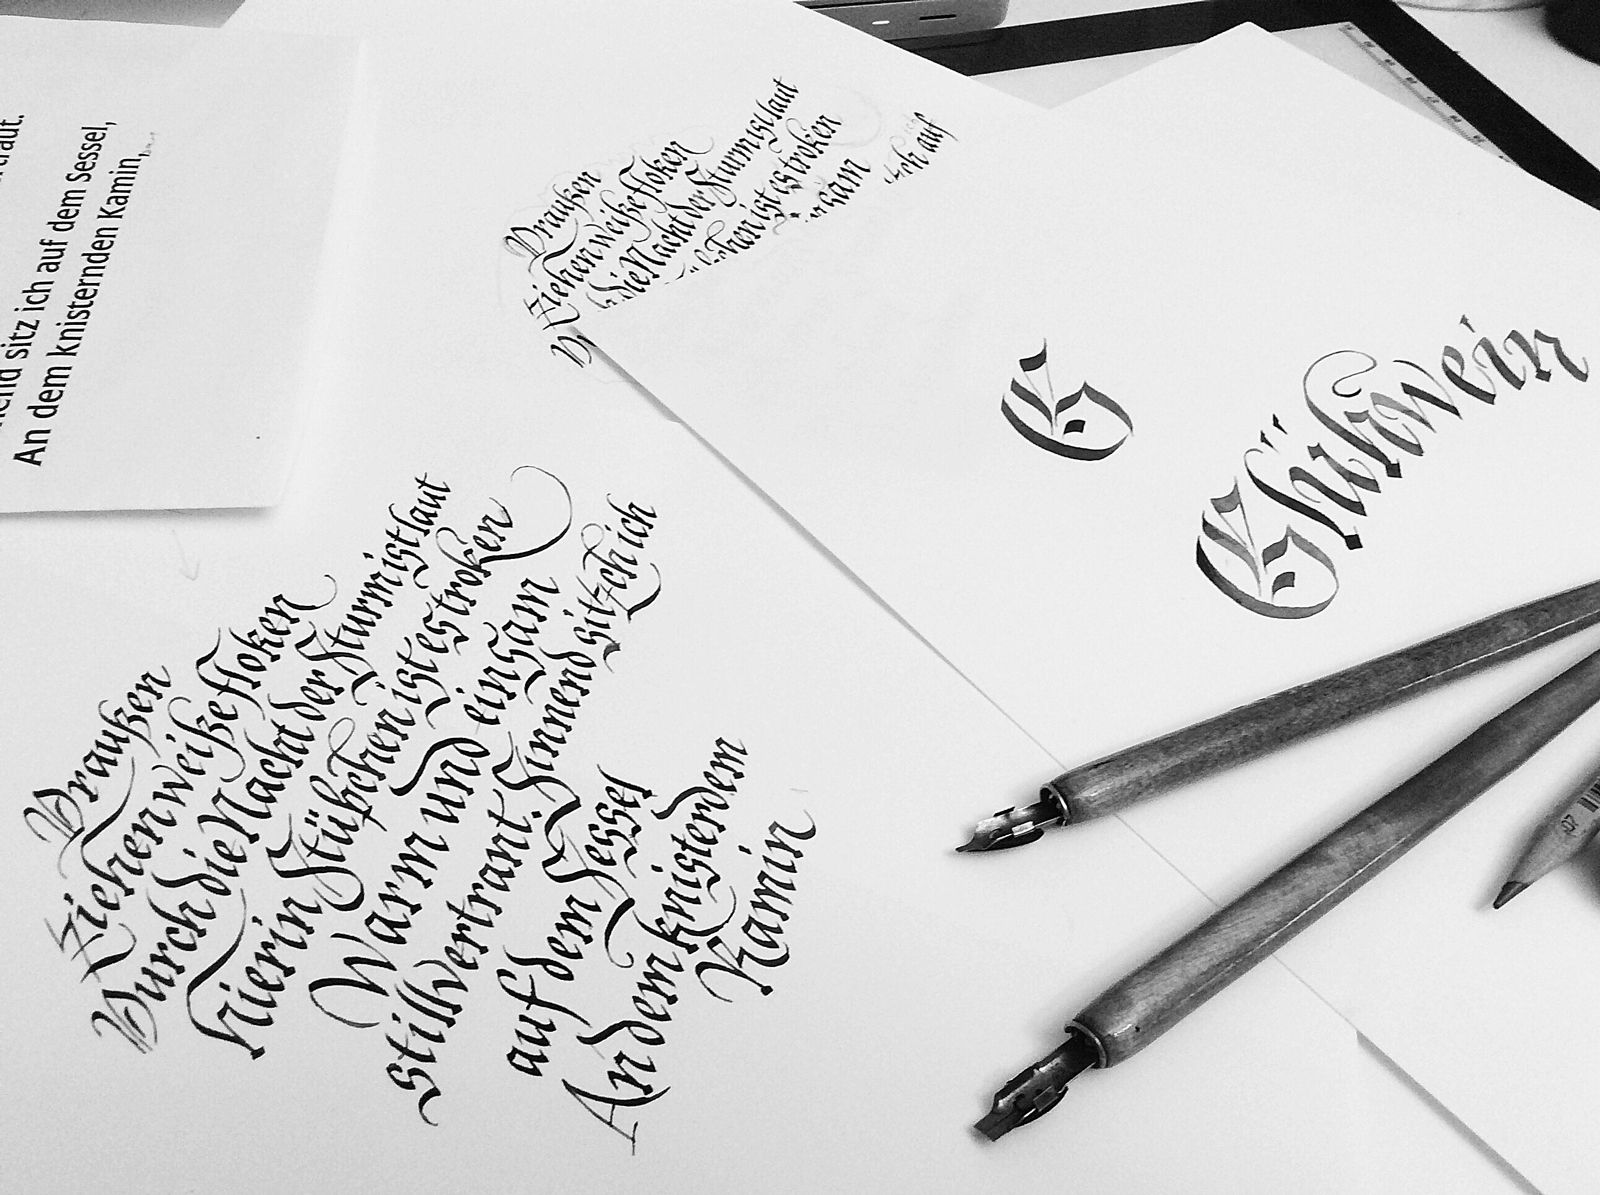 sitz ich auf dem Sessel,
An dem knisternden Kamin,
Draußen
Ziehen weiße Floken
die Nacht der Sturm ist laut
ist es troken
ich auf
G
Glühwein
Draußen
Ziehen weiße Floken
Durch die Nacht der Sturm ist laut
hier in Stübchen ist es troken
Warm und einsam
still vertraut. Sinnend sitzch ich
auf dem Sessel
An dem knisterdem
Kamin